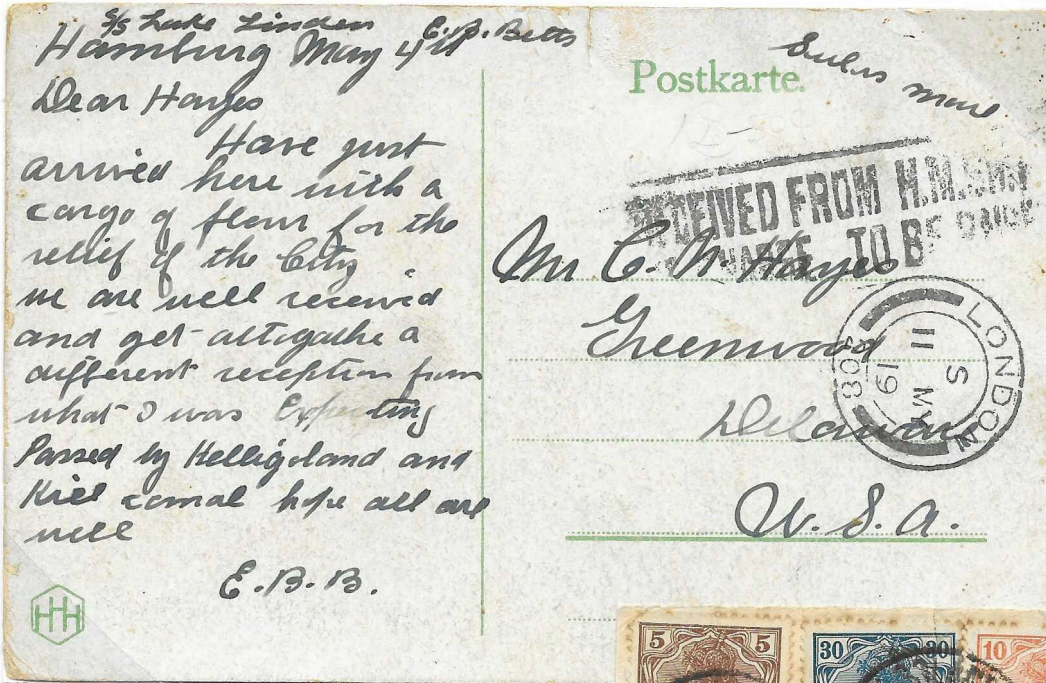 S/S Lake Linden E.B. Betts
Hamburg May 4th
Dear Hayes
Have just
arrived here with a
cargo of flour for the
relief of the City
we are well received
and get altogathe a
different reception from
what I was Expecting
Passed by Helligoland and
Kiel canal hope all are
well
E.B.B.
HHH
Postkarte.
mail
RECEIVED FROM H.M. SHIP
CHARGE TO BE
Mr C. N. Hayes
Greenwood
Delaware
U.S.A.
LONDON
11 S
MY
19
5 5
30 30
10